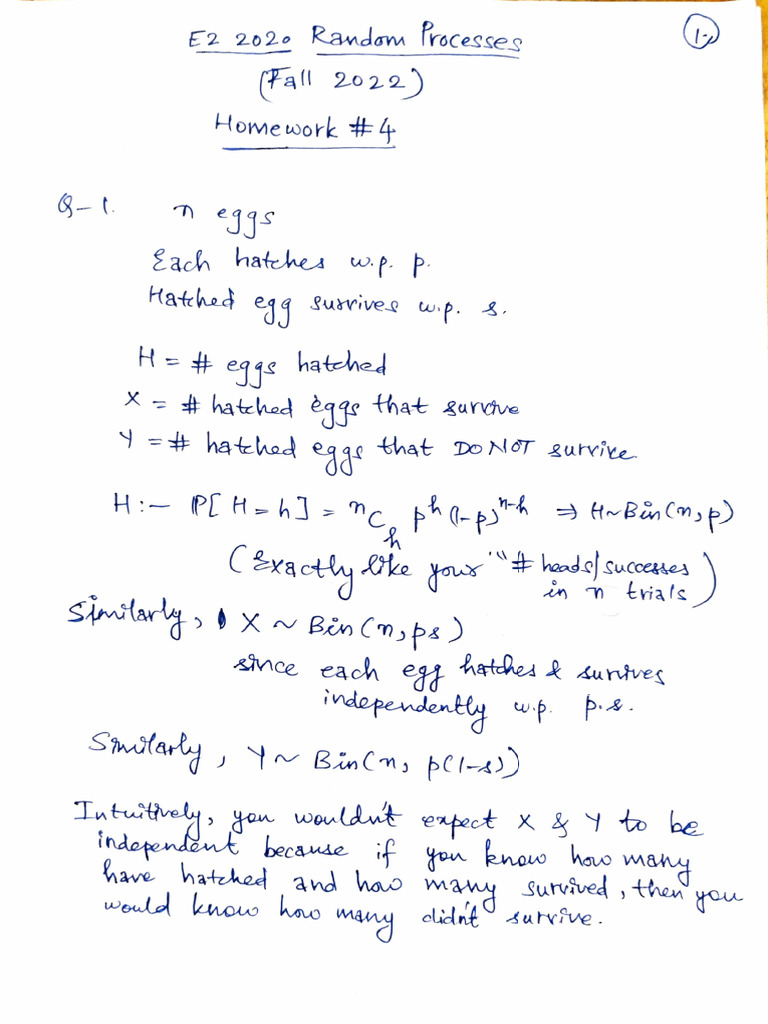 1.
E2 2020 Random Processes
(Fall 2022)
Homework #4
Q-1. n eggs
Each hatches w.p. p.
Hatched egg survives w.p. s.
H = # eggs hatched
X = # hatched eggs that survive
Y = # hatched eggs that DO NOT survive.
H:- P[H=h] = ⁿC_h p^h (1-p)^{n-h} ⇒ H~Bin(n,p)
(Exactly like your "# heads/successes
in n trials)
Similarly, X ~ Bin(n,ps)
since each egg hatches & survives
independently w.p. p.s.
Similarly, Y ~ Bin(n, p(1-s))
Intuitively, you wouldn't expect X & Y to be
independent because if you know how many
have hatched and how many survived, then you
would know how many didn't survive.